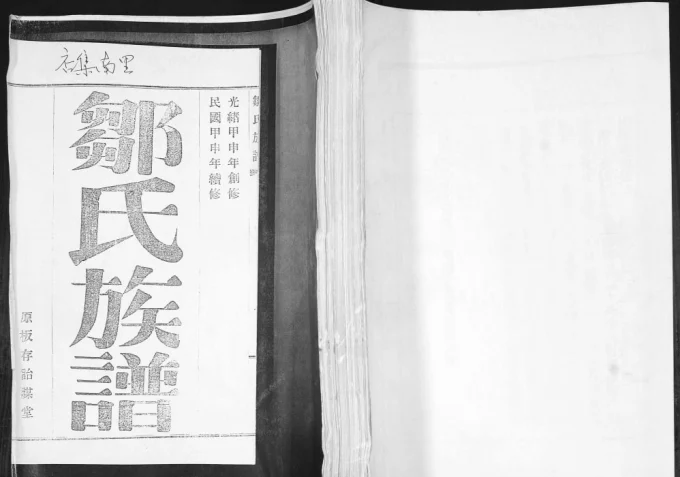 里南集店
鄒氏族譜
光緒甲申年創修
民國甲申年續修
鄒氏族譜
原板存詒謀堂